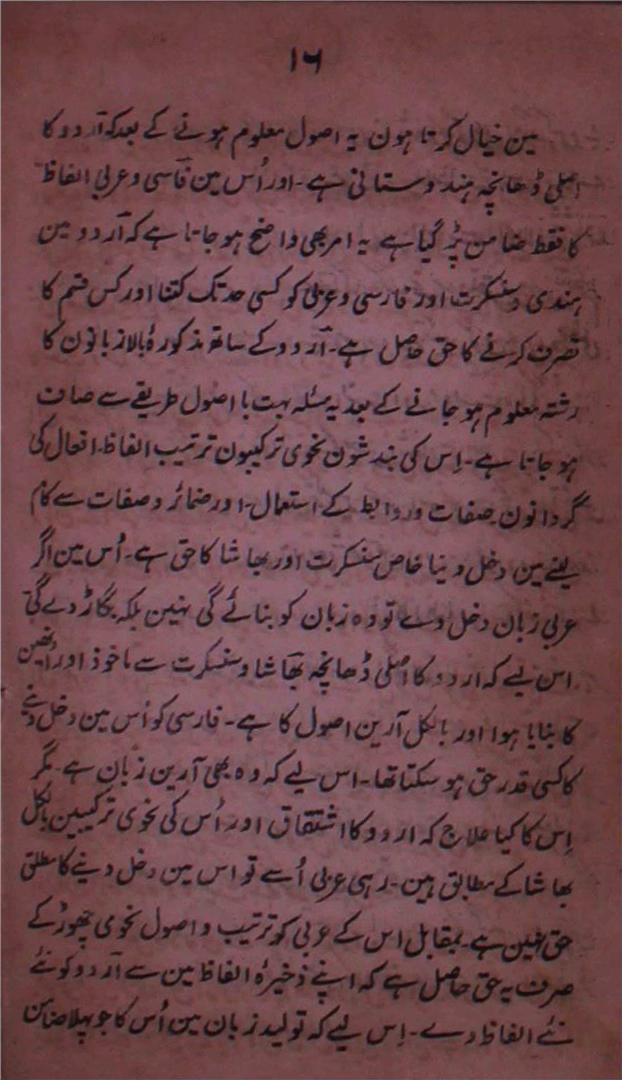 ۱۶
مین خیال کرتا ہون یہ اصول معلوم ہونے کے بعد کہ آردو کا
اصلی ڈھانچہ ہندوستانی ہے۔ اور اُس مین فآسی و عربی الفاظ
کا فقط ضامن پڑ گیا ہے یہ امر بھی واضح ہو جاتا ہے کہ آردو مین
ہندی و سنسکرت اور فارسی و عربی کو کسی حد تک کتنا اور کس قسم کا
تصرف کرنے کا حق حاصل ہے۔ آردو کے ساتھ مذکورۂ بالا زبانون کا
رشتہ معلوم ہو جانے کے بعد یہ مسئلہ بہت با اصول طریقے سے صاف
ہو جاتا ہے۔ اِس کی بندشون نحوی ترکیبون ترتیب الفاظ۔ افعال کی
گردانون۔ صفات و روابط کے استعمال۔ اور ضمائر و صفات سے کام
لینے مین دخل دینا خاص سنسکرت اور بھاشا کا حق ہے۔ اُس مین اگر
عربی زبان دخل دے تو وہ زبان کو بنائے گی نہین بلکہ بگاڑ دے گی
اس لیے کہ اردو کا اصلی ڈھانچہ بھاشا و سنسکرت سے ماخوذ اور انھین
کا بنایا ہوا اور بالکل آرین اصول کا ہے۔ فارسی کو اُس مین دخل دینے
کا کسی قدر حق ہو سکتا تھا۔ اس لیے کہ وہ بھی آرین زبان ہے۔ مگر
اِس کا کیا علاج کہ اردو کا اشتقاق اور اُس کی نحوی ترکیبین بالکل
بھاشا کے مطابق ہین۔ رہی عربی اُسے تو اس مین دخل دینے کا مطلق
حق نہین ہے۔ بمقابل اس کے عربی کو ترتیب و اصول نحوی چھوڑ کے
صرف یہ حق حاصل ہے کہ اپنے ذخیرۂ الفاظ مین سے آردو کو نئے
نئے الفاظ دے۔ اِس لیے کہ تولید زبان مین اُس کا جو پہلا ضامن